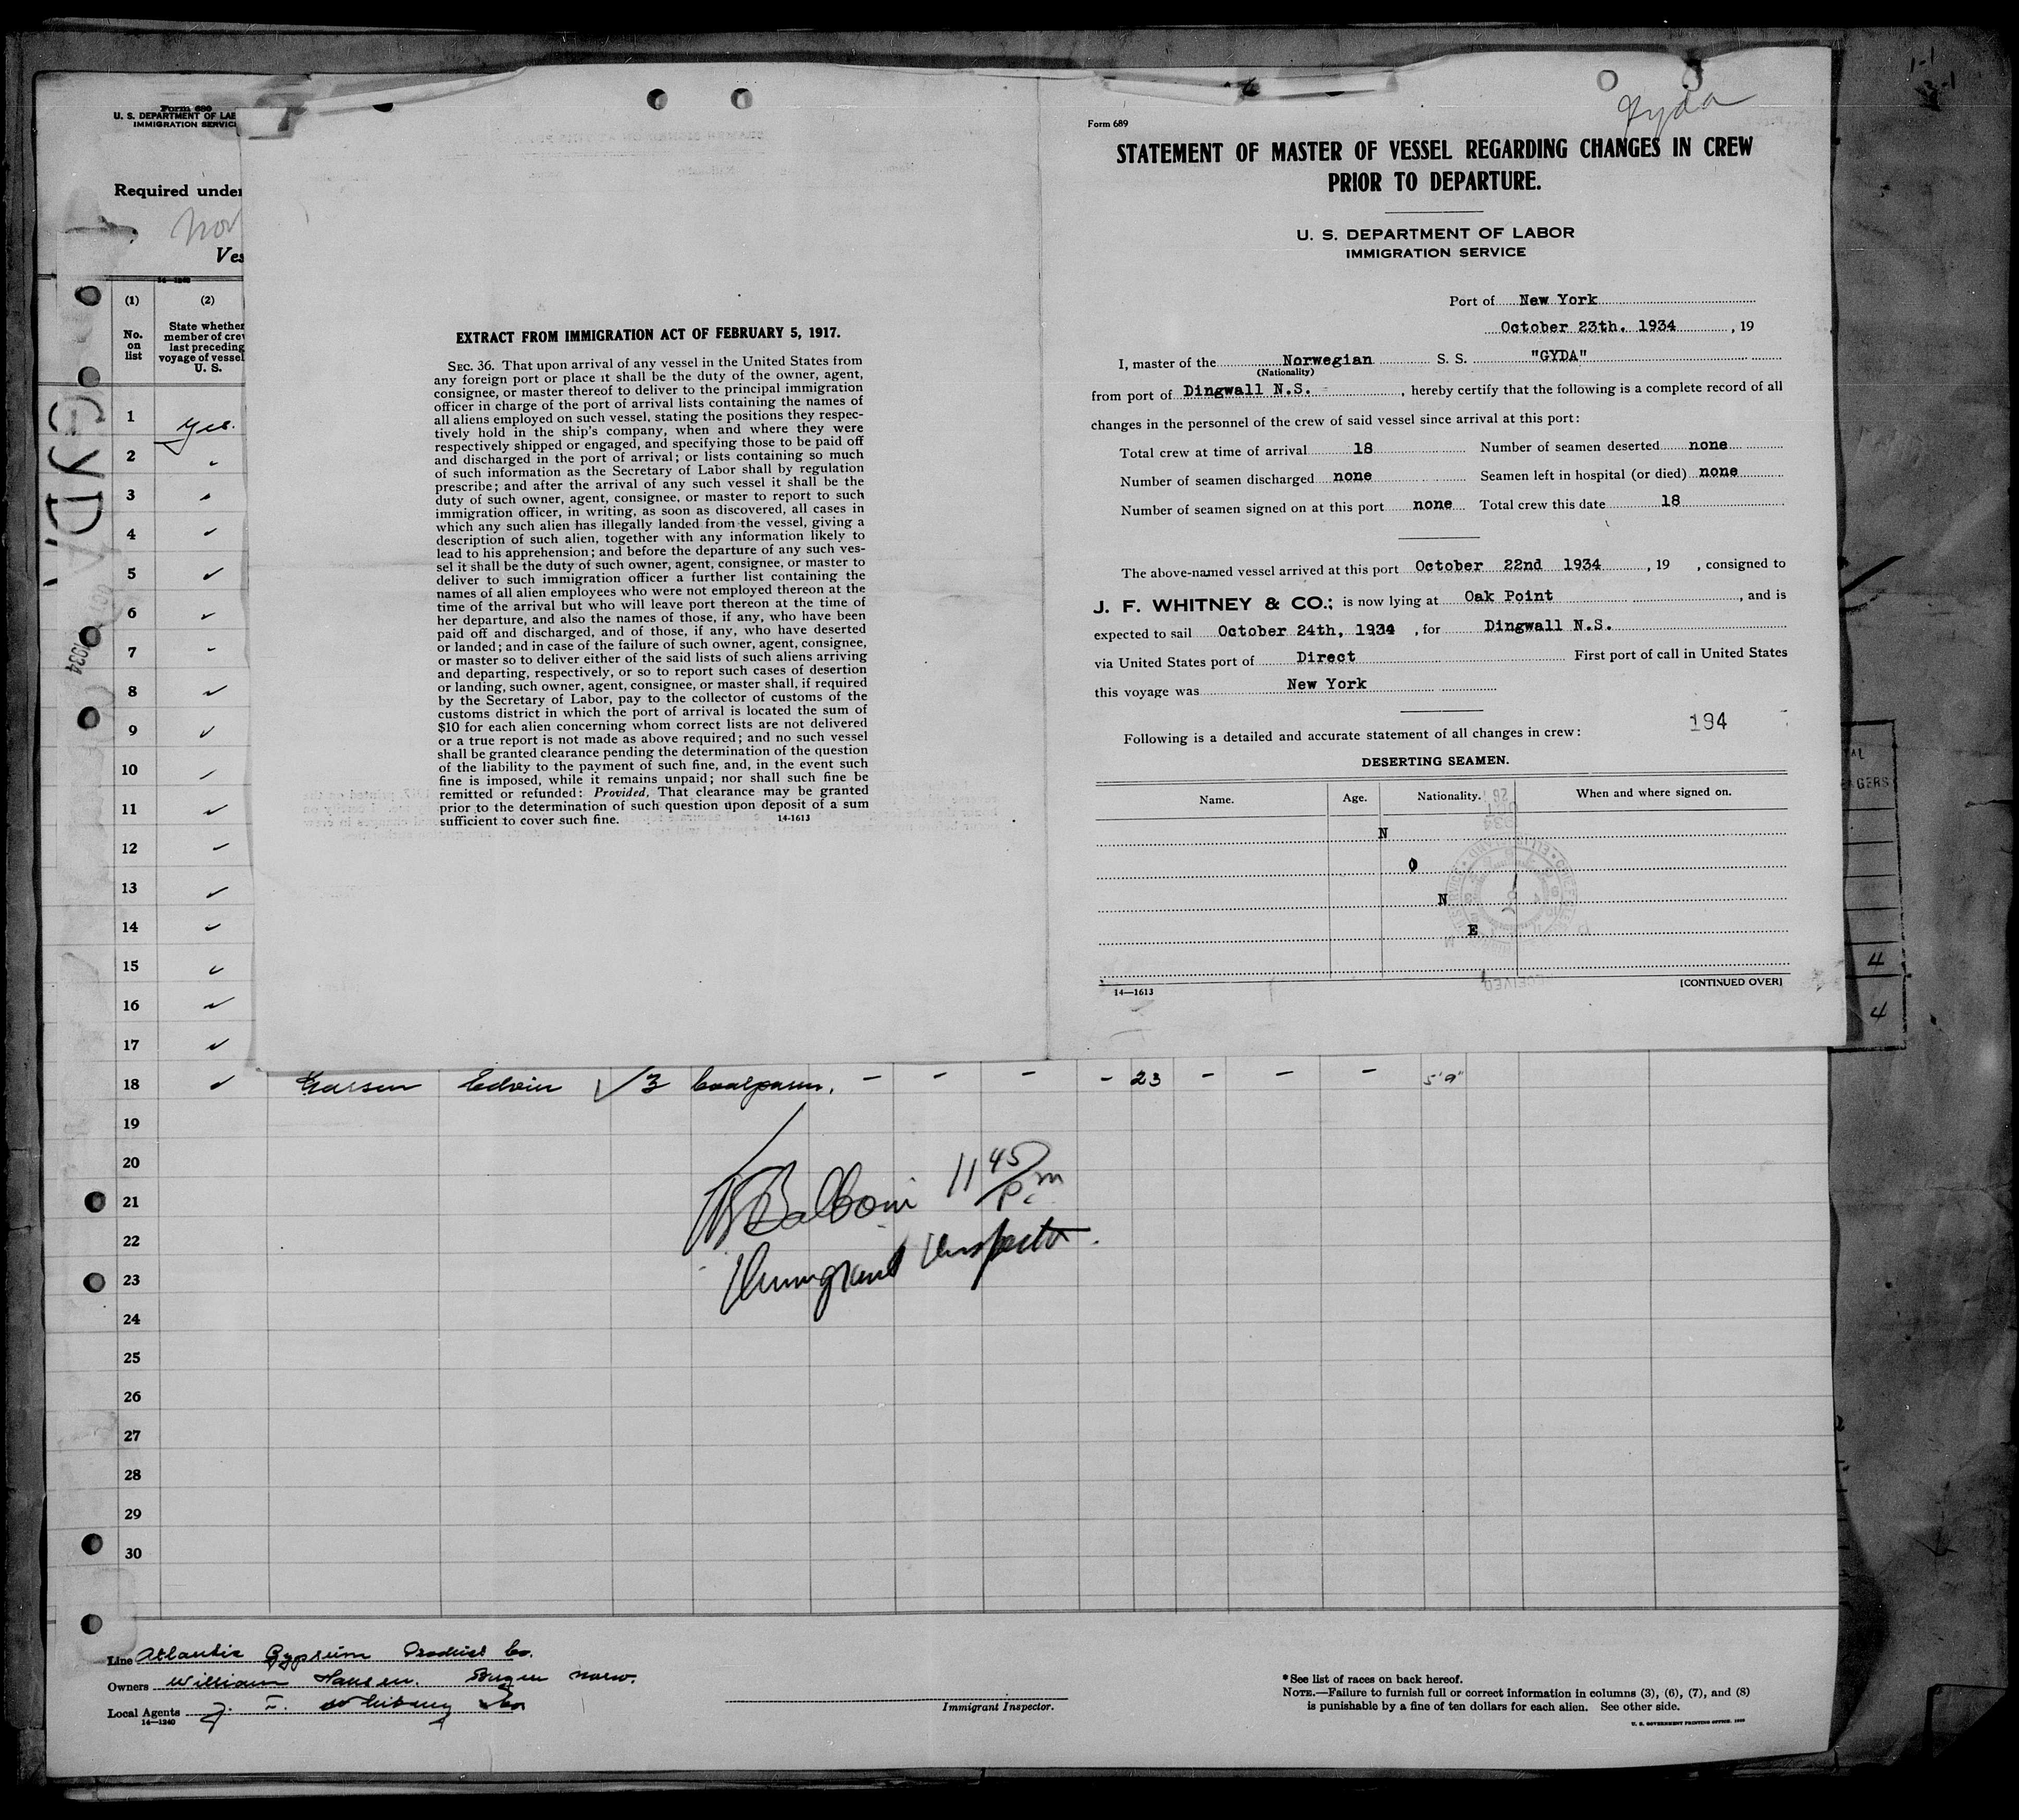 Form 680
U. S. DEPARTMENT OF LAB
IMMIGRATION SERVIC
Required under
Nor
Ves
14—1240
(1)
No.
on
list
(2)
State whether
member of crew
last preceding
voyage of vessel
U. S.
"GYDA"
1 yes.
2
3
4
5
6
7
8
9
10
11
12
13
14
15
16
17
18 Edvin 3 Coalpasser. - - - - 23 - - - 5'9"
19
20
21
22
23
24
25
26
27
28
29
30
Balboni 11 45/p.m
Immigrant Inspector.
Line Atlantic Gypsum Product Co.
Owners William Hansen. Bergen Norw.
Local Agents J. F. Whitney & Co
14—1240
Immigrant Inspector.
*See list of races on back hereof.
NOTE.—Failure to furnish full or correct information in columns (3), (6), (7), and (8)
is punishable by a fine of ten dollars for each alien. See other side.
U. S. GOVERNMENT PRINTING OFFICE
EXTRACT FROM IMMIGRATION ACT OF FEBRUARY 5, 1917.
SEC. 36. That upon arrival of any vessel in the United States from
any foreign port or place it shall be the duty of the owner, agent,
consignee, or master thereof to deliver to the principal immigration
officer in charge of the port of arrival lists containing the names of
all aliens employed on such vessel, stating the positions they respec-
tively hold in the ship's company, when and where they were
respectively shipped or engaged, and specifying those to be paid off
and discharged in the port of arrival; or lists containing so much
of such information as the Secretary of Labor shall by regulation
prescribe; and after the arrival of any such vessel it shall be the
duty of such owner, agent, consignee, or master to report to such
immigration officer, in writing, as soon as discovered, all cases in
which any such alien has illegally landed from the vessel, giving a
description of such alien, together with any information likely to
lead to his apprehension; and before the departure of any such ves-
sel it shall be the duty of such owner, agent, consignee, or master to
deliver to such immigration officer a further list containing the
names of all alien employees who were not employed thereon at the
time of the arrival but who will leave port thereon at the time of
her departure, and also the names of those, if any, who have been
paid off and discharged, and of those, if any, who have deserted
or landed; and in case of the failure of such owner, agent, consignee,
or master so to deliver either of the said lists of such aliens arriving
and departing, respectively, or so to report such cases of desertion
or landing, such owner, agent, consignee, or master shall, if required
by the Secretary of Labor, pay to the collector of customs of the
customs district in which the port of arrival is located the sum of
$10 for each alien concerning whom correct lists are not delivered
or a true report is not made as above required; and no such vessel
shall be granted clearance pending the determination of the question
of the liability to the payment of such fine, and, in the event such
fine is imposed, while it remains unpaid; nor shall such fine be
remitted or refunded: Provided, That clearance may be granted
prior to the determination of such question upon deposit of a sum
sufficient to cover such fine. 14-1613
Gyda
Form 689
STATEMENT OF MASTER OF VESSEL REGARDING CHANGES IN CREW
PRIOR TO DEPARTURE.
U. S. DEPARTMENT OF LABOR
IMMIGRATION SERVICE
Port of New York
October 23th. 1934, 19
I, master of the Norwegian S. S. "GYDA"
(Nationality)
from port of Dingwall N.S. , hereby certify that the following is a complete record of all
changes in the personnel of the crew of said vessel since arrival at this port:
Total crew at time of arrival 18 Number of seamen deserted none
Number of seamen discharged none Seamen left in hospital (or died) none
Number of seamen signed on at this port none Total crew this date 18
The above-named vessel arrived at this port October 22nd 1934, 19 , consigned to
J. F. WHITNEY & CO.; is now lying at Oak Point, and is
expected to sail October 24th, 1934, for Dingwall N.S.
via United States port of Direct First port of call in United States
this voyage was New York
194
Following is a detailed and accurate statement of all changes in crew:
DESERTING SEAMEN.
Name. Age. Nationality. When and where signed on.
N
O
N
E
14—1613 [CONTINUED OVER]
AL
AGERS
4
4